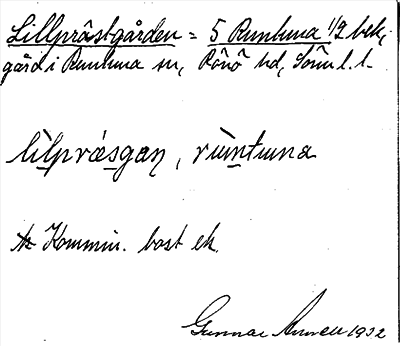 Lillprästgården = 5 Runtuna 1/2 bek,
gård i Runtuna sn, Rönö hd, Söml. l.
lìlpræsgan, rùntuna
Kommin. bost ek.
Gunnar 1932